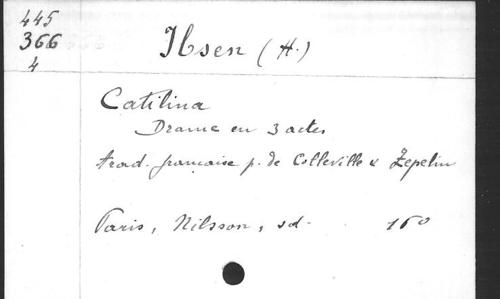 445
366
4
Ibsen (H.)
Catilina
Drame en 3 actes
trad. française p. de Colleville & Zepelin
Paris, Nilsson, sd. 160